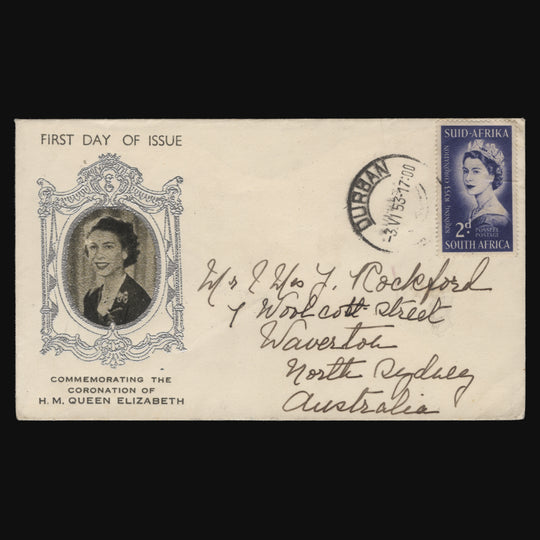 FIRST DAY OF ISSUE
COMMEMORATING THE
CORONATION OF
H. M. QUEEN ELIZABETH
DURBAN
-3.VI 53-17:00
SUID-AFRIKA
KRONING 1953 CORONATION
2d
POSSEËL
POSTAGE
SOUTH AFRICA
Mr & Mrs J. Rockford
7 Woolcott Street
Waverton
North Sydney
Australia